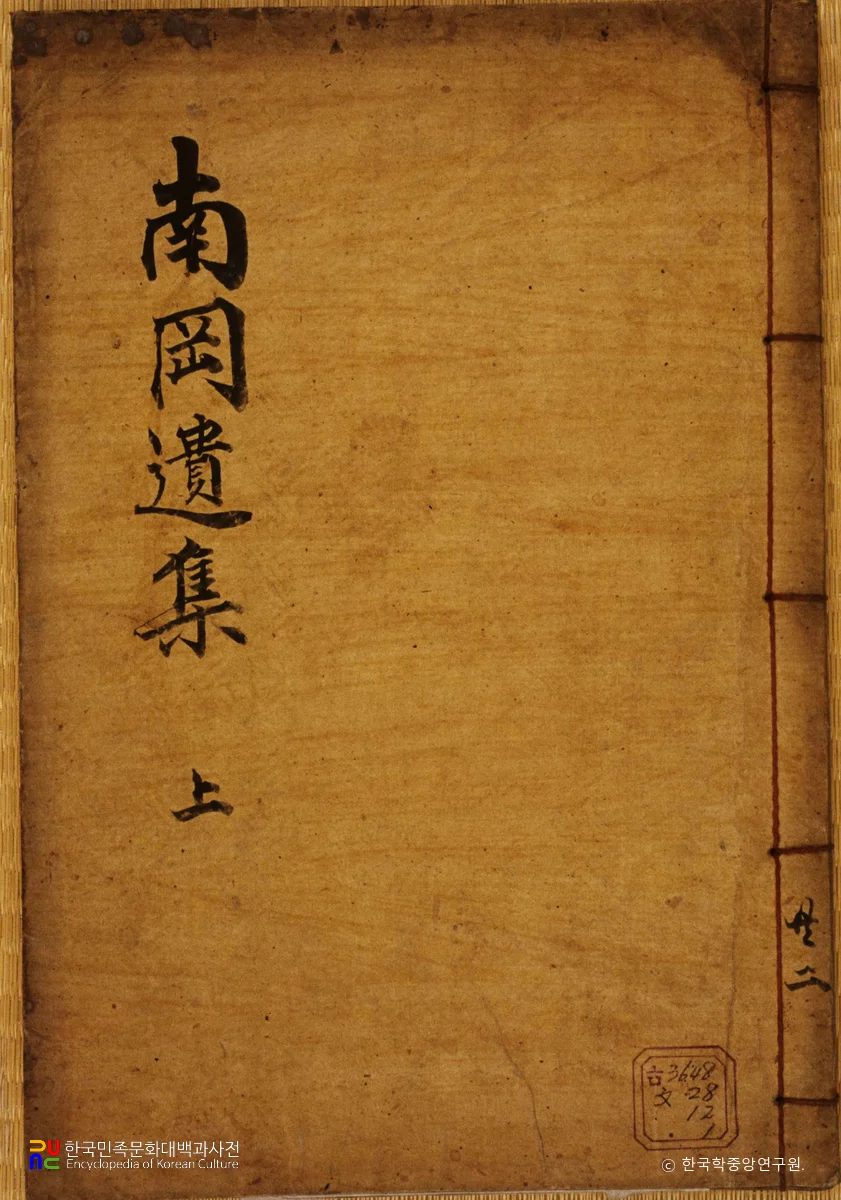 南岡遺集 上
共二
古 3648
文 28
12
1
한국민족문화대백과사전
Encyclopedia of Korean Culture
© 한국학중앙연구원.